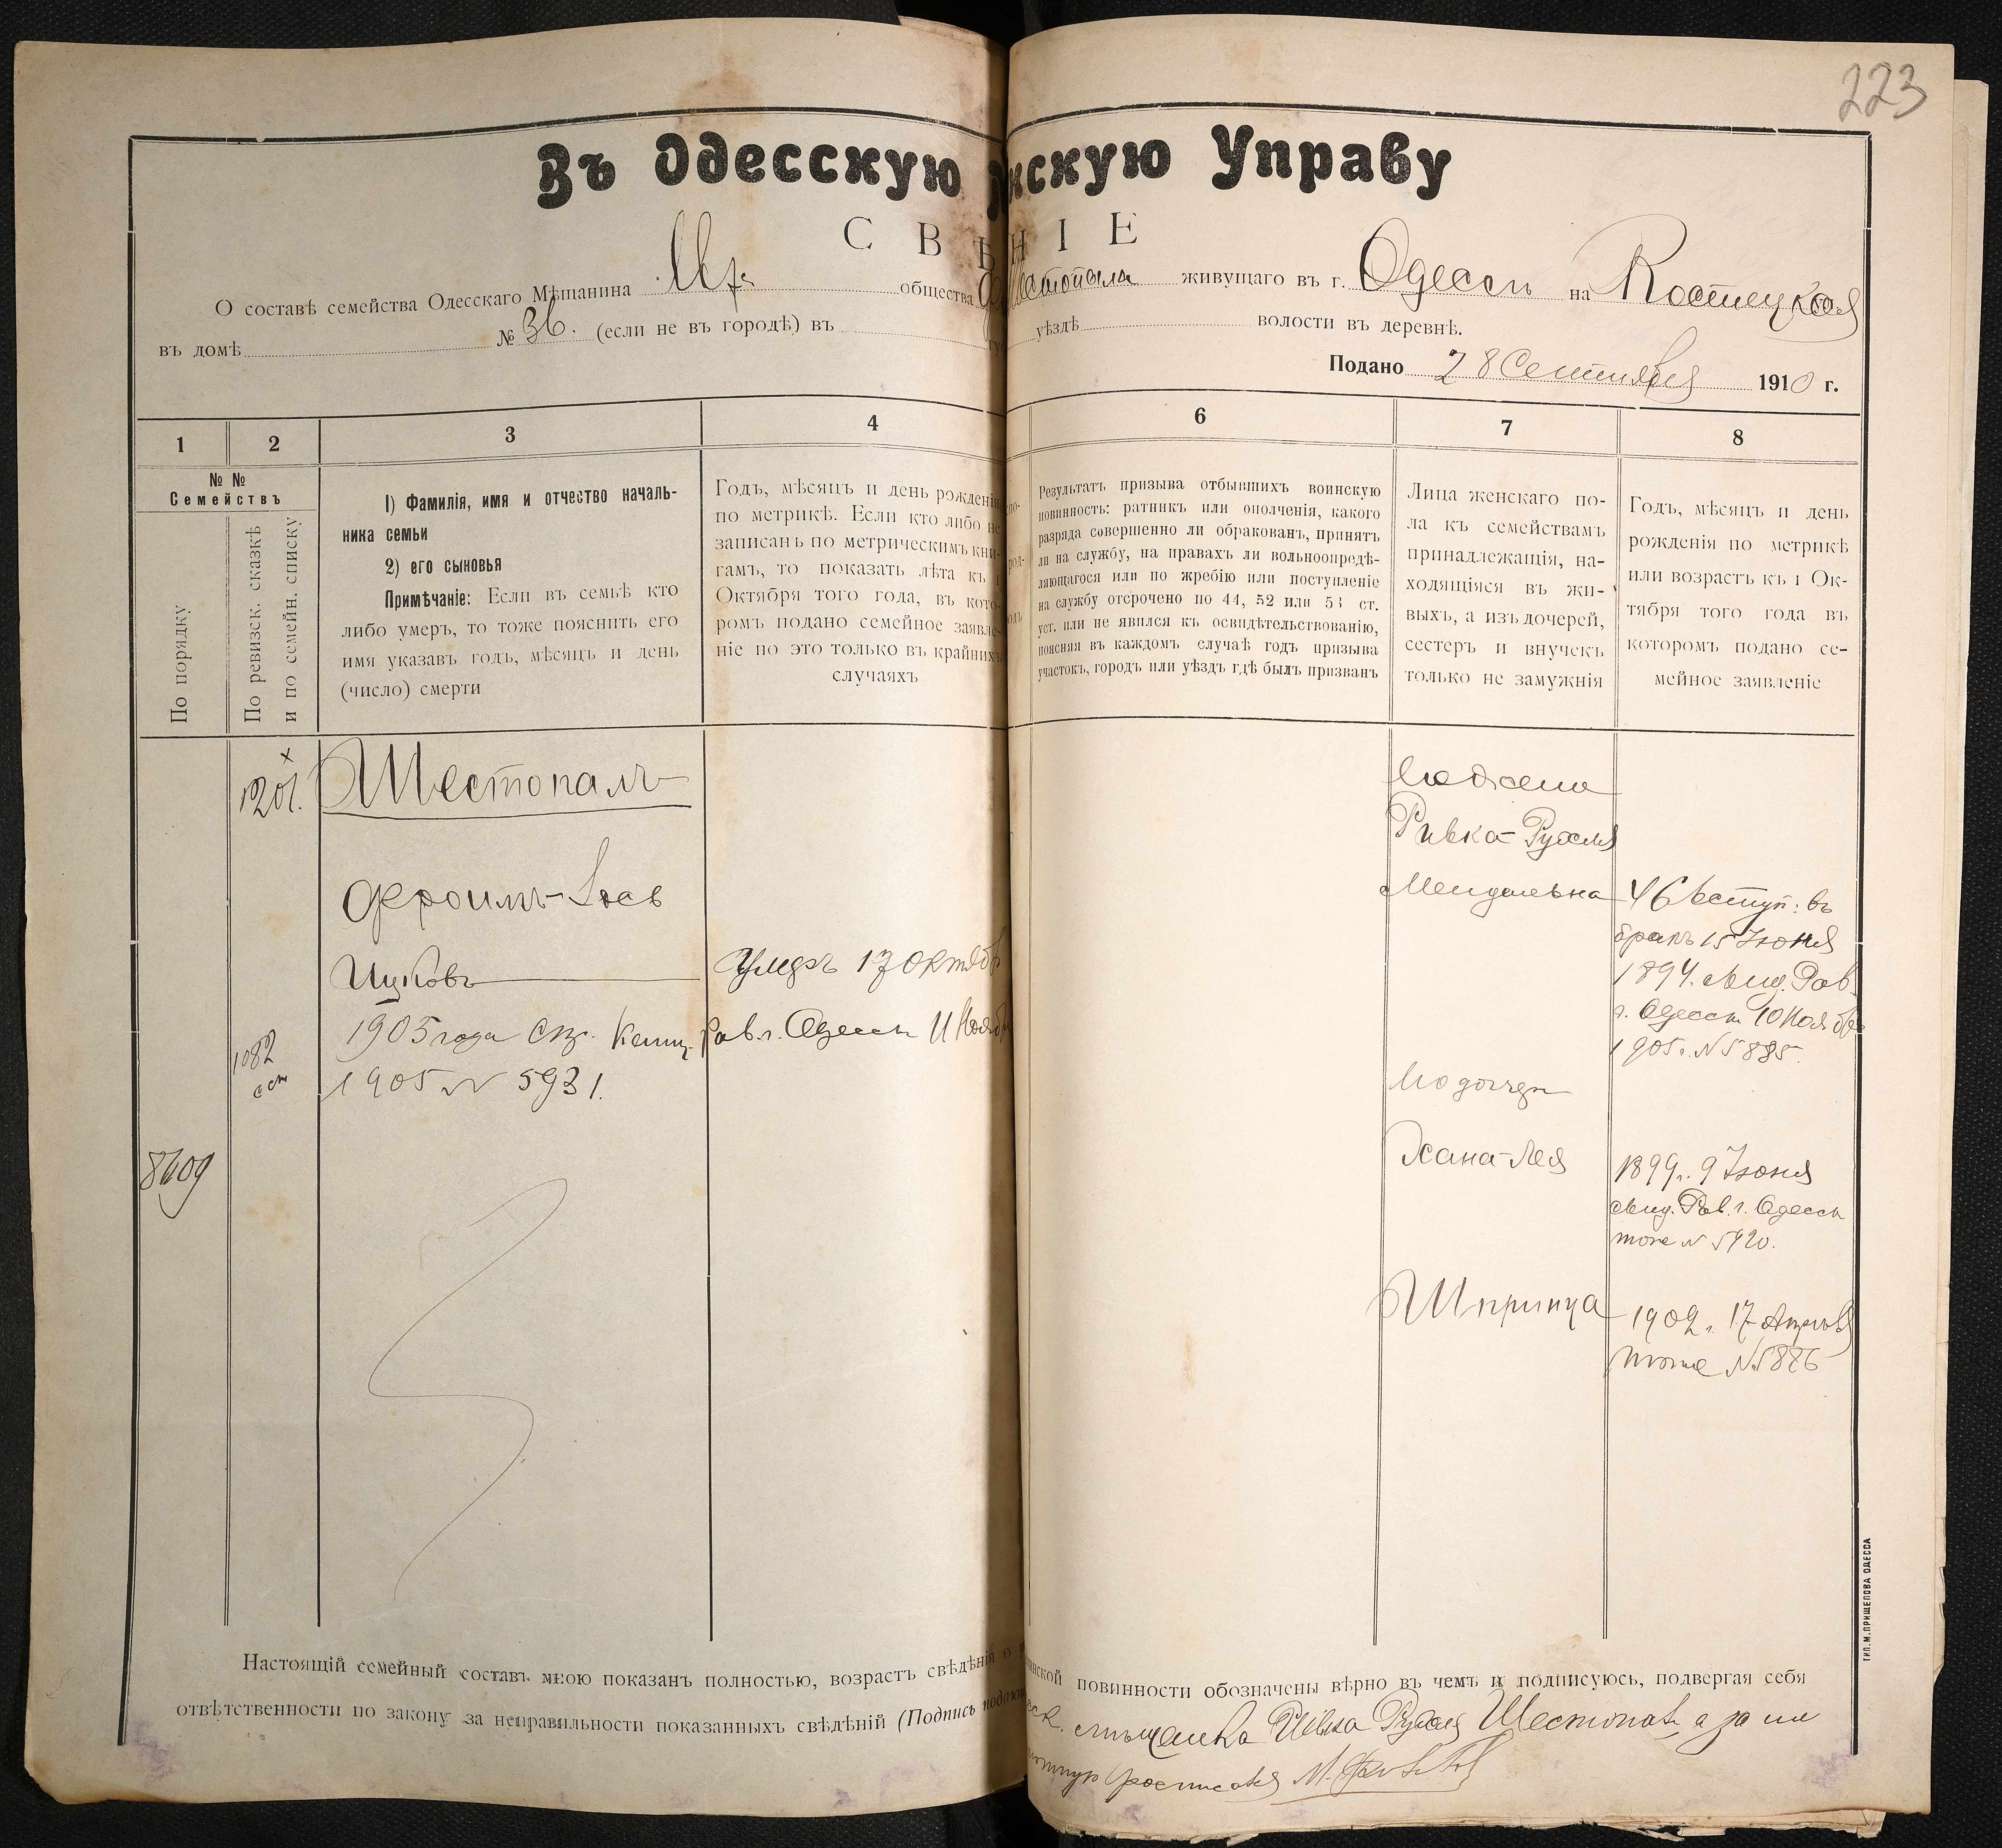 223
Въ Одесскую нскую Управу
СВѢ НІЕ
О составѣ семейства Одесскаго Мѣщанина общества Шестопала живущаго въ г. Одессѣ на Костецкой
въ домѣ № 36. (если не въ городѣ) въ уѣздѣ волости въ деревнѣ.
Подано 28 Сентября 1910 г.
1 2 3 4 6 7 8
№ № Семействъ
По порядку
По ревизск. сказкѣ и по семейн. списку
1) Фамилія, имя и отчество началь-
ника семьи
2) его сыновья
Примѣчаніе: Если въ семьѣ кто
либо умеръ, то тоже пояснить его
имя указавъ годъ, мѣсяцъ и день
(число) смерти
Годъ, мѣсяцъ и день рожденія
по метрикѣ. Если кто либо не
записанъ по метрическимъ кни-
гамъ, то показать лѣта къ 1
Октября того года, въ кото-
ромъ подано семейное заявле-
ніе но это только въ крайнихъ
случаяхъ
Результатъ призыва отбывшихъ воинскую
повинность: ратникъ или ополченія, какого
разряда совершенно ли обракованъ, принятъ
ли на службу, на правахъ ли вольноопредѣ-
ляющагося или по жребію или поступленіе
на службу отсрочено по 44, 52 или 53 ст.
уст. или не явился къ освидѣтельствованію,
поясняя въ каждомъ случаѣ годъ призыва
участокъ, городъ или уѣздъ гдѣ былъ призванъ
Лица женскаго по-
ла къ семействамъ
принадлежащія, на-
ходящіяся въ жи-
выхъ, а изъ дочерей,
сестеръ и внучекъ
только не замужнія
Годъ, мѣсяцъ и день
рожденія по метрикѣ
или возрастъ къ 1 Ок-
тября того года въ
которомъ подано се-
мейное заявленіе
1201.
Шестопалъ
Фроимъ-Іосъ
Ицковъ
Умеръ 17 Октяб
1905 года Рав. г. Одессы 11 Нояб
1905 № 5931.
1082
8609
Его жена
Ривка-Рухля
Мендельевна
46 вступ: въ
бракъ 15 Іюня
1894. Рав.
г. Одессы 10 Нояб
1905 г. № 5885.
Его дочери
Хана-Лея
1899 г. 9 Іюня
Рав. г. Одессы
тоже № 5420.
Шпринца
1902 г. 17 Апрѣля
тоже № 5886
Настоящій семейный составъ мною показанъ полностью, возрастъ свѣдѣнія о нской повинности обозначены вѣрно въ чемъ и подписуюсь, подвергая себя
отвѣтственности по закону за неправильности показанныхъ свѣдѣній (Подпись мѣщанка Ривка Рухля Шестопалъ, а за не
росписался
ТИП. М. ПРИЩЕПОВА ОДЕССА